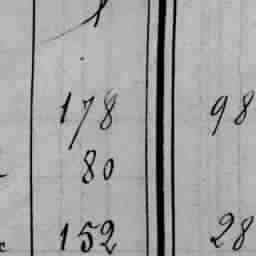 178 98
80
152 28